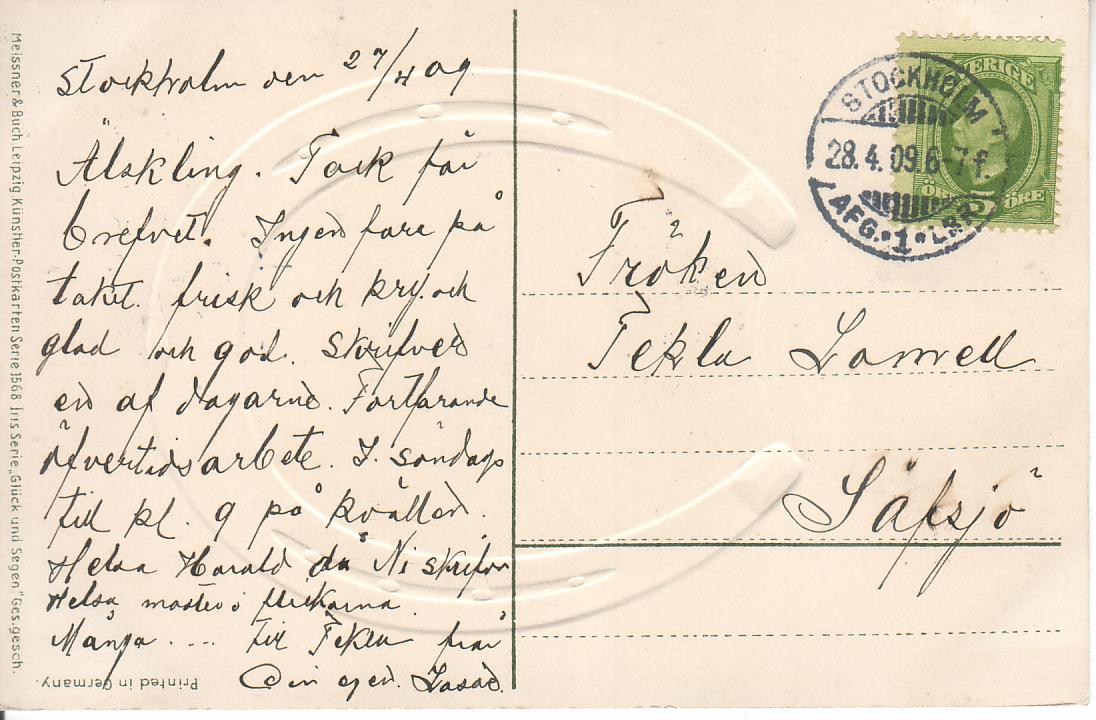 Stockholm den 27/4 09
Älskling. Tack för
brefvet. Ingen fara på
taket. frisk och kry. och
glad och god. Skrifver
en af dagarne. Fortfarande
öfvertidsarbete. I. söndags
till kl. 9 på kvällen.
Helsa Harald då Ni skrifver
Helsa moster o flickorna.
Många .... till Tekla från
Din egen.
Fröken
Tekla
Säfsjö
SVERIGE
5 ÖRE
STOCKHOLM 1
28.4.09.6-7 f.
AFG. 1 LBR
Meissner & Buch, Leipzig. Künstler-Postkarten Serie 1568 Iris Serie „Glück und Segen." Ges. gesch.
Printed in Germany.